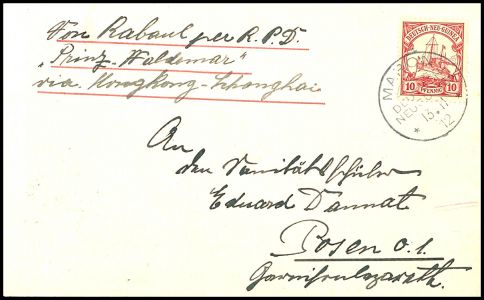 Von Rabaul per R.P.D.
„Prinz Waldemar"
via Hongkong-Schanghai
DEUTSCH-NEU-GUINEA
10 PFENNIG 10
MA
NEU
13.11
12
*
An
den Sanitätsschüler
Eduard Dannat
Posen O.1.
Garnisonlazareth.